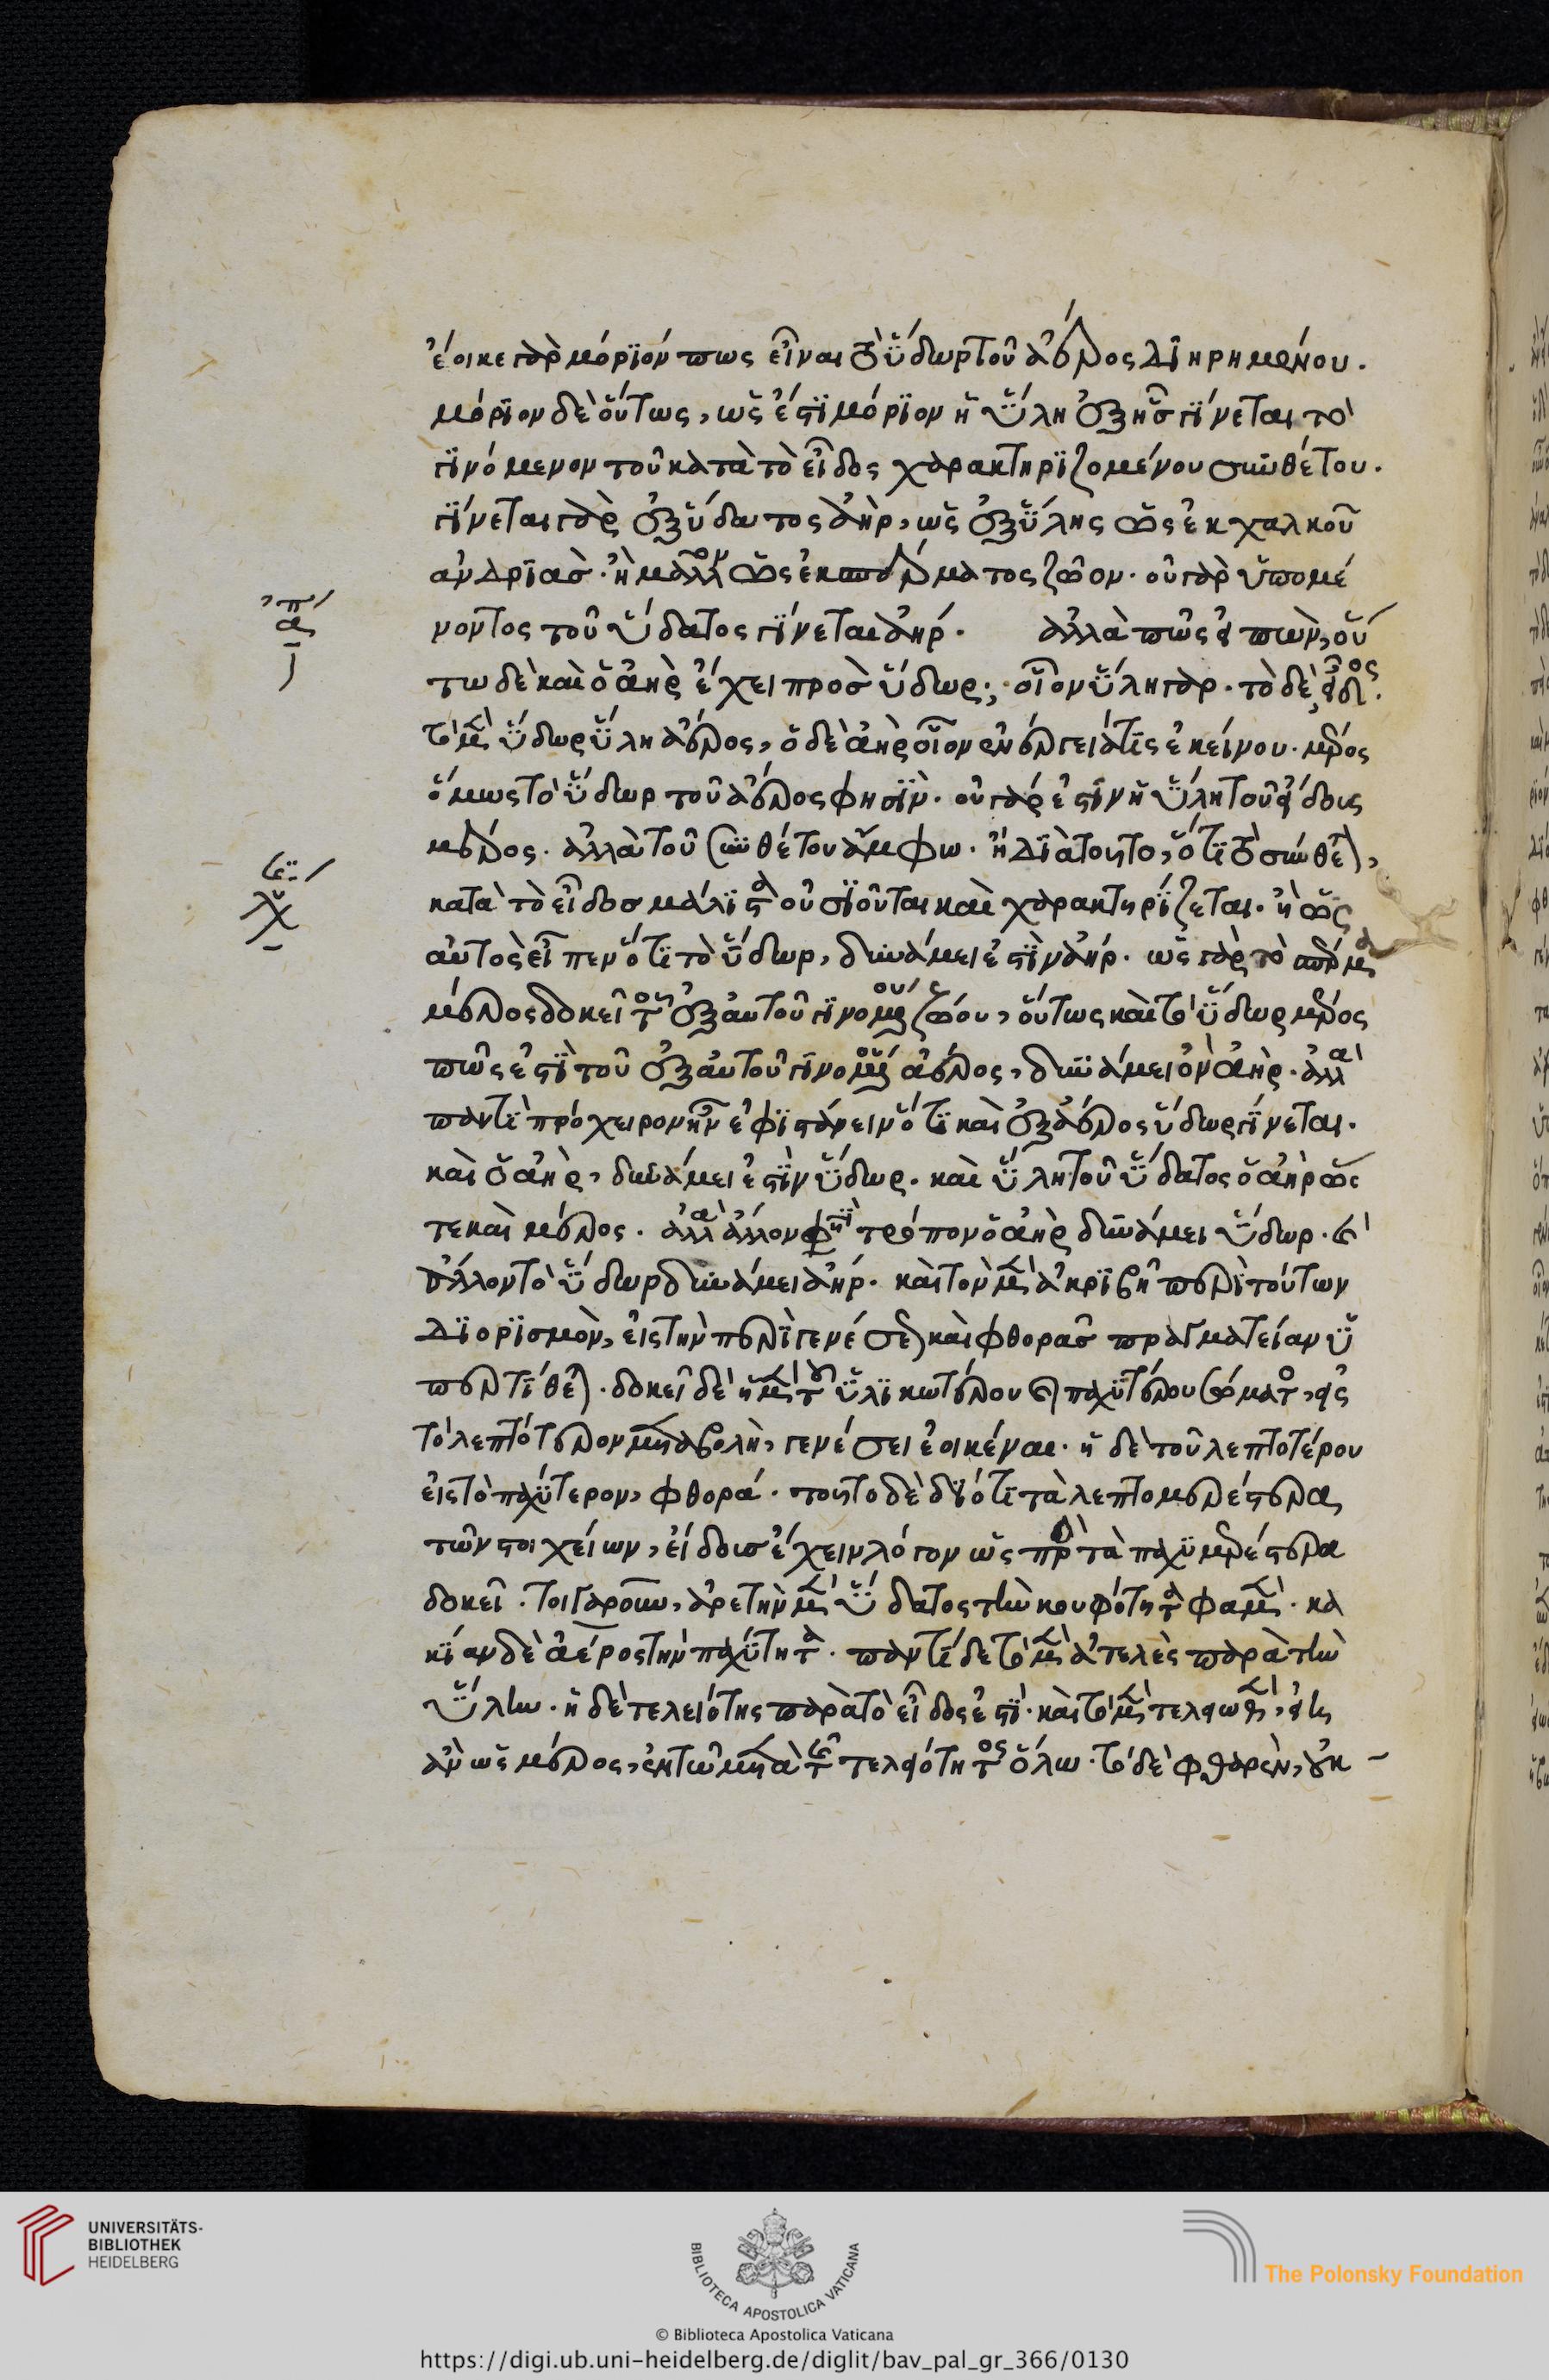 ἔοικε γὰρ μόριόν πως εἶναι τὸ ὕδωρ τοῦ ἀέρος διῃρημένου.
μόριον δὲ οὕτως, ὡς ἔστι μόριον ἡ ὕλη ἐξ ἧς γίνεται τὸ
γινόμενον τοῦ κατὰ τὸ εἶδος χαρακτηριζομένου συνθέτου.
γίνεται γὰρ ἐξ ὕδατος ἀὴρ, ὡς ἐξ ὕλης ὡς ἐκ χαλκοῦ
ἀνδριάς. ἢ μᾶλλον ὡς ἐκ σπέρματος ζῷον. οὐ γὰρ ὑπομέ
νοντος τοῦ ὕδατος γίνεται ἀήρ. ἀλλὰ πῶς εἰπὼν, οὕ
ἀπ
τω δὲ καὶ ὁ ἀὴρ ἔχει πρὸς ὕδωρ; οἷον ὕλη γάρ. τὸ δὲ εἶδος.
τὸ μὲν ὕδωρ ὕλη ἀέρος, ὁ δὲ ἀὴρ οἷον ἐνέργειά τις ἐκείνου. μέρος
ὅμως τὸ ὕδωρ τοῦ ἀέρος φησίν. οὐ γάρ ἐστιν ἡ ὕλη τοῦ εἴδους
μέρος. ἀλλὰ τοῦ συνθέτου ἄμφω. ἢ διὰ τοῦτο, ὅτι τὸ σύνθετον,
κατὰ τὸ εἶδος μάλιστα οὐσιοῦται καὶ χαρακτηρίζεται. ἢ ὡς
αὐτὸς εἶπεν ὅτι τὸ ὕδωρ, δυνάμει ἐστὶν ἀήρ. ὡς γὰρ τὸ σπέρμα
μέρος δοκεῖ τοῦ ἐξ αὐτοῦ γινομένου ζῴου, οὕτως καὶ τὸ ὕδωρ μέρος
πῶς ἐστὶ τοῦ ἐξ αὐτοῦ γινομένου ἀέρος, δυνάμει ὂν ἀήρ. ἀλλὰ
παντὶ πρόχειρον ἦν ἐφιστάνειν ὅτι καὶ ἐξ ἀέρος ὕδωρ γίνεται.
καὶ ὁ ἀὴρ, δυνάμει ἐστὶν ὕδωρ. καὶ ὕλη τοῦ ὕδατος ὁ ἀὴρ ὥς
τε καὶ μέρος. ἀλλὰ ἄλλον φησὶ τρόπον ὁ ἀὴρ δυνάμει ὕδωρ. καὶ
ἄλλον τὸ ὕδωρ δυνάμει ἀήρ. καὶ τὸν μὲν ἀκριβῆ περὶ τούτων
διορισμὸν, εἰς τὴν περὶ γενέσεως καὶ φθορᾶς πραγματείαν ὑ
περτίθεται. δοκεῖ δὲ ἡ μὲν τοῦ ὑλικωτέρου καὶ παχυτέρου σώματος, εἰς
τὸ λεπτότερον μεταβολὴ, γενέσει ἐοικέναι. ἡ δὲ τοῦ λεπτοτέρου
εἰς τὸ παχύτερον, φθορά. τοῦτο δὲ διότι τὰ λεπτομερέστερα
τῶν στοιχείων, εἴδους ἔχειν λόγον ὡς πρὸς τὰ παχυμερέστερα
δοκεῖ. τοιγαροῦν, ἀρετὴν μὲν ὕδατος τὴν κουφότητα φαμὲν. κα
κίαν δὲ ἀέρος τὴν παχύτητα. παντὶ δὲ τὸ μὲν ἀτελὲς παρὰ τὴν
ὕλην. ἡ δὲ τελειότης παρὰ τὸ εἶδος ἐστί. καὶ τὸ μὲν τελειωθὲν, εἴη
ἂν ὡς μέρος, ἐν τῷ μετὰ τῆς τελειότητος ὅλῳ. τὸ δὲ φθαρὲν, οὐκ
UNIVERSITÄTS-
BIBLIOTHEK
HEIDELBERG
BIBLIOTECA APOSTOLICA VATICANA
The Polonsky Foundation
© Biblioteca Apostolica Vaticana
https://digi.ub.uni-heidelberg.de/diglit/bav_pal_gr_366/0130